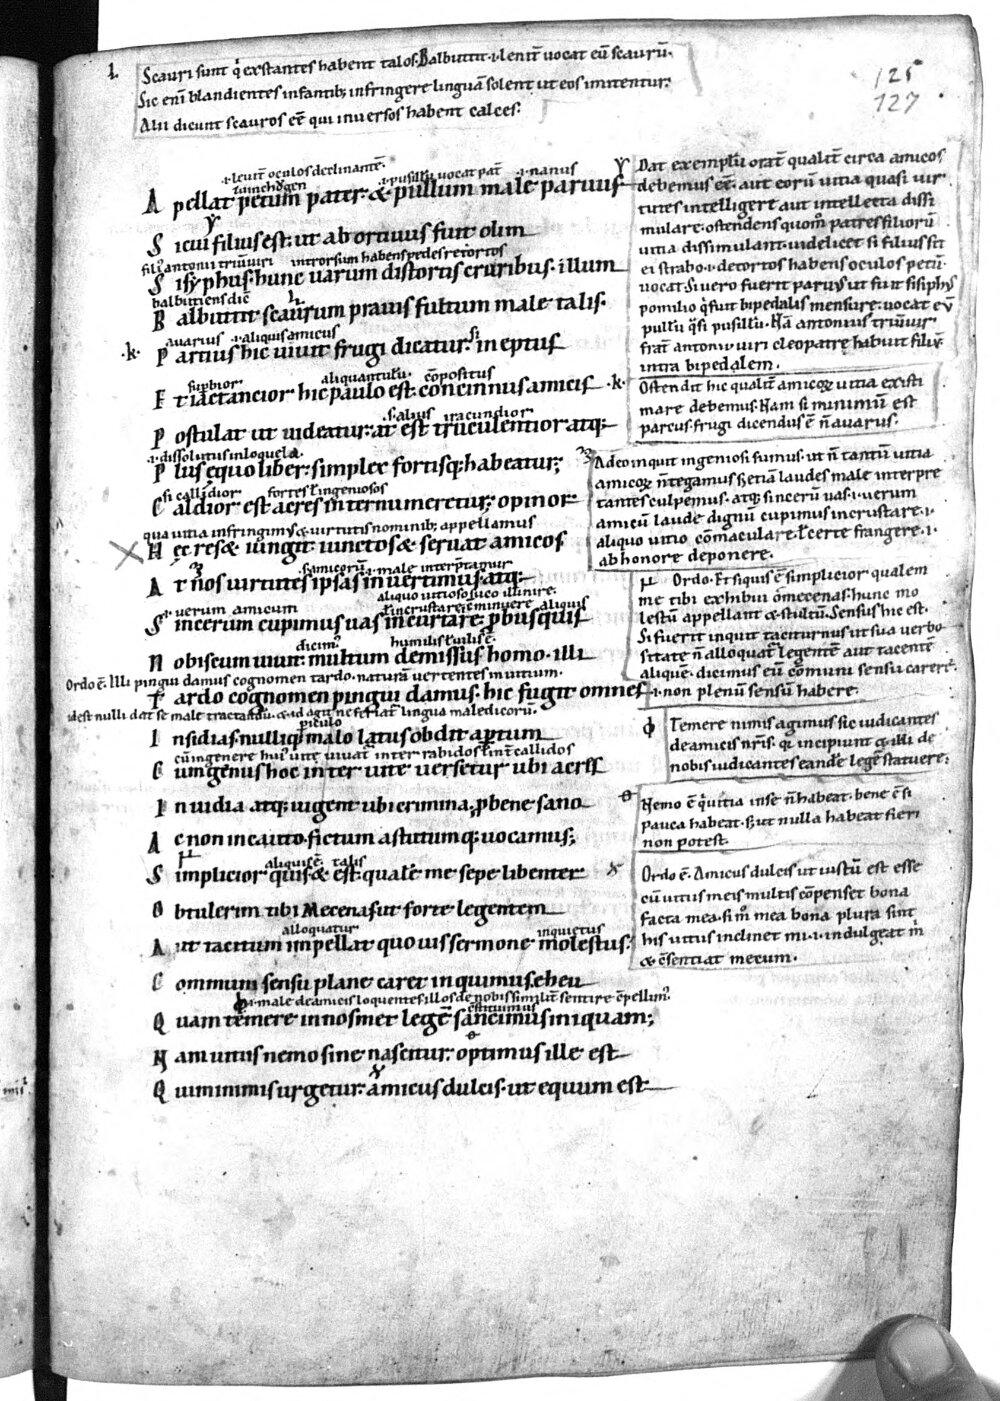 l. Scauri sunt q̅ exstantes habent talos. Balbuttit .i. lenit̅ vocat eu̅ scauru̅.
Sic eni̅ blandientes infantib; infringere lingua̅ solent ut eos imitentur.
Alii dicunt scauros ee̅ qui inversos habent calces.
125
127
.i. levit̅ oculos declinante̅. .i. pusillu̅ vocat pat̅ .i. nanus
Appellat petum pater. & pullum male parvus
Sicui filius est. ut abortivus fuit olim
filius antonii triu̅viri introrsum habens pedes retortos
Sisyphus. hunc varum distortis cruribus. illum
balbutiens dic̅
Balbuttit scaurum pravis fultum male talis.
avarus .i. aliquis amicus si
.k. Parcius hic vivit frugi dicatur. ineptus
supbior aliquantulu̅ co̅positus
Et iactancior hic paulo est. concinnus amicis
s. alius iracundior
Postulat ut videatur. at est truculentior atq;
.i. dissolutus in loquela.
Plus equo liber. simplex fortisq; habeatur;
si callidior fortes l̅ ingeniosos
Caldior est acres inter numeretur; opinor
qua vitia infringim; & virtutis nominib; appellamus
Hec res & iungit iunctos & servat amicos
s. amicoru̅ .i. male interp̅tamur
At nos virtutes ipsas invertimus. atq;
aliquo vitioso suco illinire.
s. verum amicum l̅ incrustare. e̅ minuere aliquis
Sincerum cupimus vas incurtare. p̅bus quis
dicim; humilis l̅ vilis e̅.
Nobiscum vivit. multum demissus homo. illi
Ordo e̅. Illi pingui damus cognomen tardo. natura vertentes in vitium.
Tardo cognomen pingui damus. hic fugit omnes
idest nulli dat se male tractandu̅. & id agit ne feriat̅ lingua maledicoru̅.
piculo
Insidias. nulliq; malo latus obdit aptum
cu̅ in genere hui; vite vivat̅ inter rabidos l̅ int̅ callidos
Cum genus hoc inter vite versetur ubi acris
Invidia atq; vigent ubi crimina; p̅ bene sano
Ac non incauto. fictum astutumq; vocamus;
aliquis e̅. talis
Simplicior quis & est. quale̅ me sepe libenter
Obtulerim tibi Mecenas ut forte legentem
alloquatur inquietus
Aut tacitum impellat quovis sermone molestus.
Communi sensu plane caret inquimus. eheu
.i. male de amicis loquentes. illos de nobis similit̅ sentire co̅pellim;
statuimus
Quam temere in nosmet lege̅ sancimus iniquam;
Nam vitiis nemo sine nascitur. optimus ille est
Qui minimis urgetur. amicus dulcis. ut equum est
Dat exemplu̅ orat̅ qualit̅ circa amicos
debemus ee̅. aut eoru̅ vitia quasi vir
tutes intelligere aut intellecta dissi
mulare. ostendens quom̊ patres filioru̅
vitia dissimulant. videlicet si filius sit
ei strabo .i. detortos habens oculos petu̅.
vocat Si vero fuerit parvus ut fuit sisiphus
pomilio q̅ fuit bipedalis mensure. vocat eu̅
pullu̅ q̅si pusillu̅. Na̅ antonius triu̅vir
frat̅ antonii viri cleopatre habuit filiu̅
intra bipedalem.
.k. Ostendit hic qualit̅ amicoꝝ vitia existi
mare debemus. Nam si minimu̅ est
parcus. frugi dicendus e̅ n̅ avarus.
Adeo inquit ingeniosi sumus. ut n̅ tantu̅ vitia
amicoꝝ n̅ tegamus. s; etia̅ laudes male interpre
tantes culpemus. atq; sinceru̅ vas .i. verum
amicu̅ laude dignu̅ cupimus incrustare .i.
aliquo vitio co̅maculare. l̅ certe frangere .i.
ab honore deponere.
Ordo. Et siquis e̅ simplicior qualem
me tibi exhibui o mecenas. hunc mo
lestu̅ appellant & stultu̅. Sensus hic est.
Si fuerit inquit taciturnus ut sua verbo
sitate n̅ alloquat̅ legente̅ aut tacente̅
alique̅. dicimus eu̅ co̅muni sensu carere.
.i. non plenu̅ sensu̅ habere.
φ Temere nimis agimus sic iudicantes
de amicis nr̅is. q̅ incipiunt & illi de
nobis iudicantes eande̅ lege̅ statuere.
Nemo e̅ q̅ vitia in se n̅ habeat. bene e̅ si
pauca habeat. s; ut nulla habeat fieri
non potest.
Ordo e̅. Amicus dulcis ut iustu̅ est esse
cu̅ vitiis meis multis co̅penset bona
facta mea. si m̊ mea bona plura sint
his vitiis inclinet mi .i. indulgeat m̅
& co̅sentiat mecum.